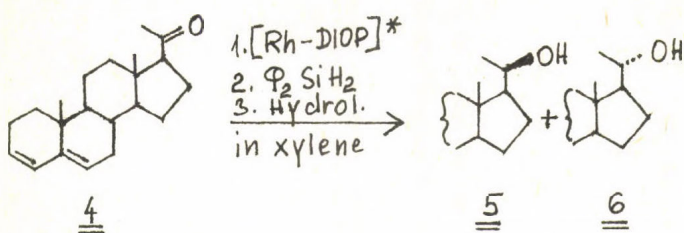 O
1. [Rh-DIOP]*
2. φ₂SiH₂
3. Hydrol.
in xylene
OH
+
OH
4
5
6